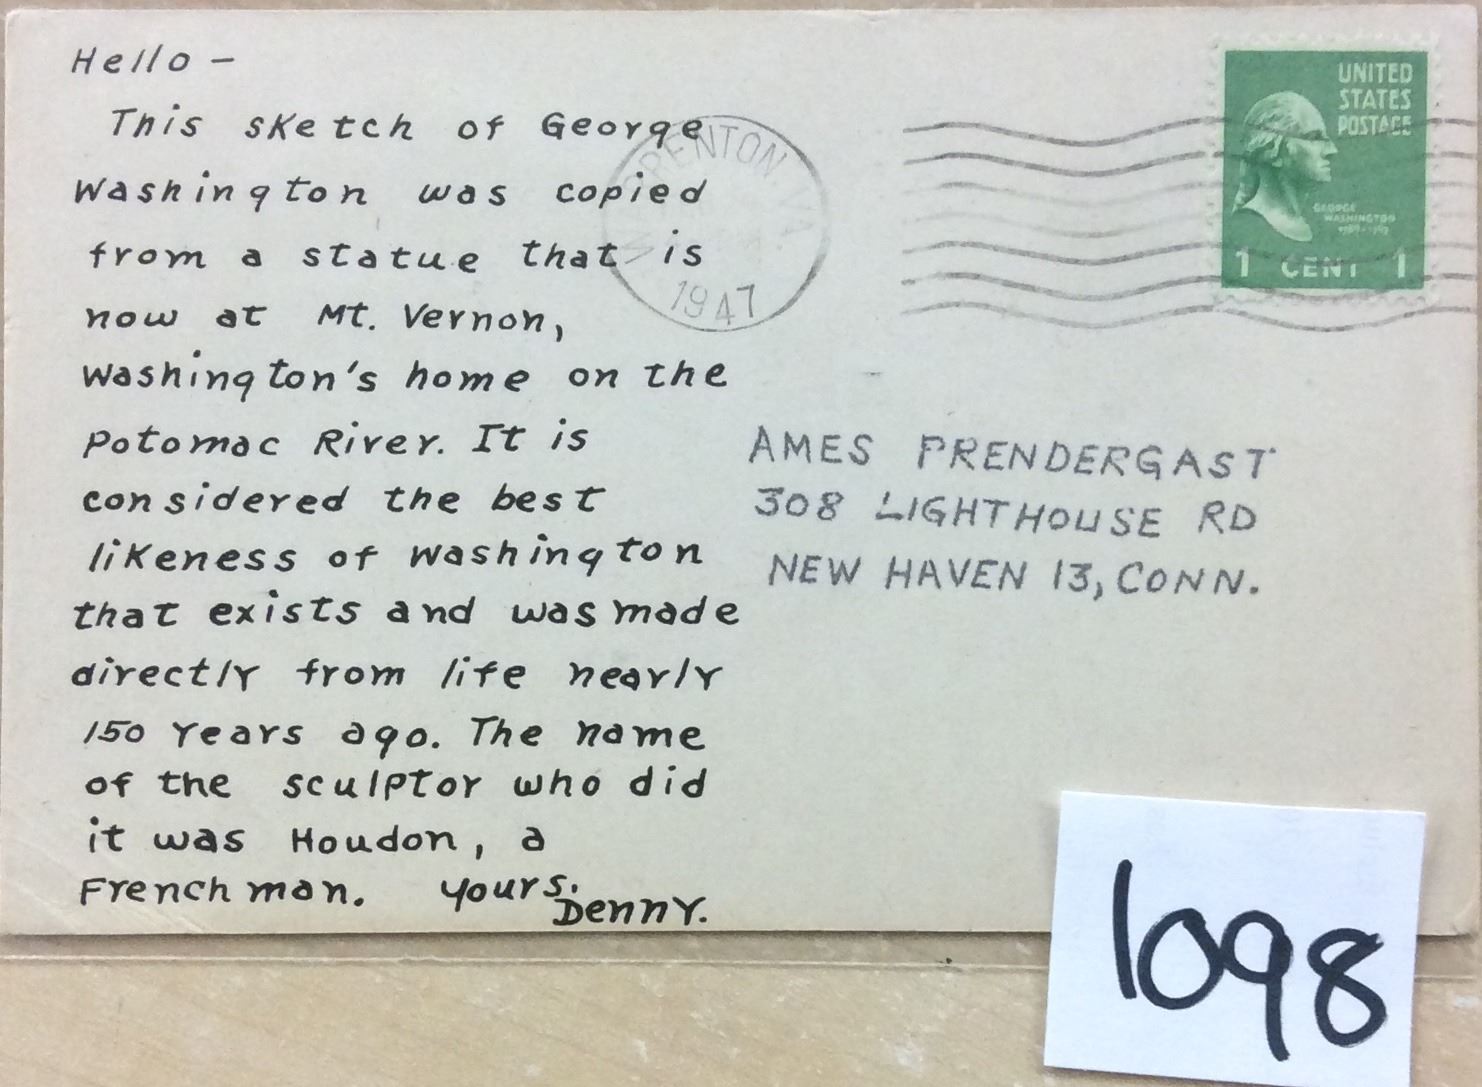 Hello -
This sketch of George
Washington was copied
from a statue that is
now at Mt. Vernon,
Washington's home on the
Potomac River. It is
considered the best
likeness of Washington
that exists and was made
directly from life nearly
150 years ago. The name
of the sculptor who did
it was Houdon, a
Frenchman. Yours.
Denny.
1947
UNITED
STATES
POSTAGE
GEORGE
WASHINGTON
1 CENT 1
AMES PRENDERGAST
308 LIGHTHOUSE RD
NEW HAVEN 13, CONN.
1098